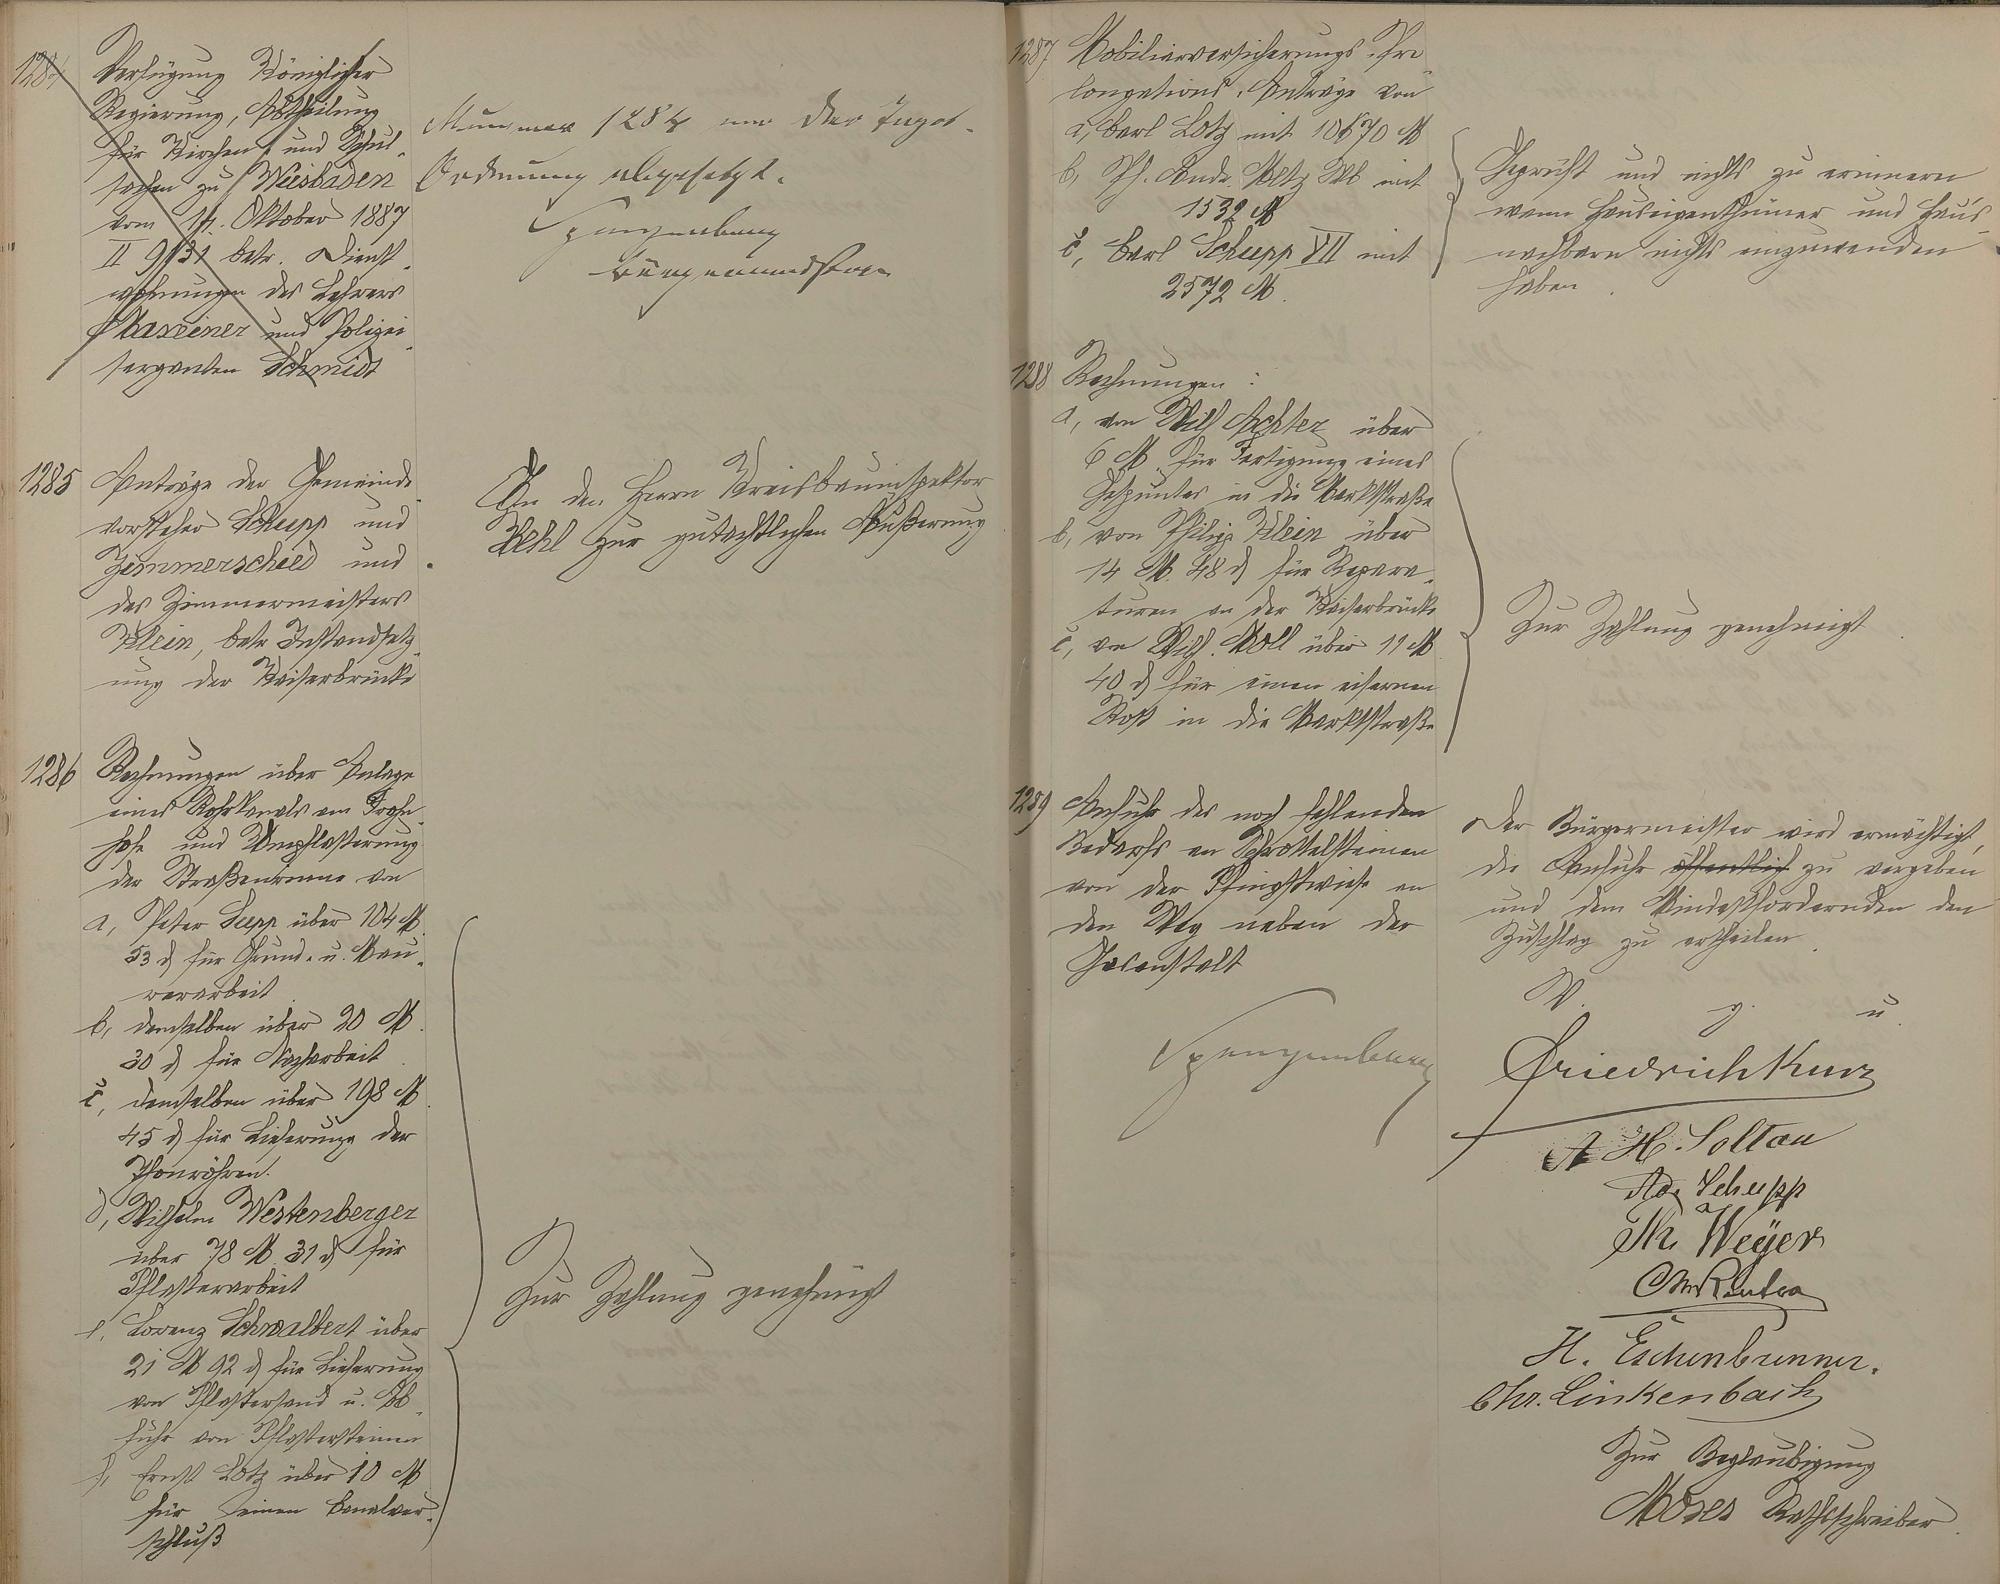 1284
Verfügung Königlicher
Regierung, Abtheilung
für Kirchen und Schul-
sachen zu Wiesbaden
vom 14. Oktober 1887
II 9131 betr. Dienst-
wohnungen des Lehrers
und Polizei-
serganten Schmidt
Nummer 1284 von der Tages-
Ordnung abgesetzt.
Spangenberg
Bürgermeister
1285 Anträge der Gemeinde-
vorsteher Schupp und
Zimmerscheid und
des Zimmermeisters
Klein, betr. Instandsetz-
ung der Kaiserbrücke
An den Herrn Kreisbauinspektor
zur gutachtlichen Äußerung
1286 Rechnungen über Anlage
eines Rohrkanals am Frohn-
hofe und Umpflasterung
der Straßenrinne von
a, Peter Supp über 104 M
53 d für Grund- u. Mau-
rerarbeit
b, demselben über 20 M.
30 d für Nacharbeit
c, demselben über 198 M
45 d für Lieferung der
Thonröhren.
d, Wilhelm Westenberger
über 78 M. 31 d für
Pflasterarbeit
e, Lorenz Schwalbert über
21 M 92 d für Lieferung
von Pflastersand u. Ab-
fuhr von Pflastersteinen
f, Ernst Lotz über 10 M
für einen Canalver-
schluß
Zur Zahlung genehmigt
1287 Mobiliarversicherungs-Pro
longations-Anträge von
a, Carl Lotz mit 10670 M
b, Ph. Andr. Metz Wb mit
1532 M
c, Carl Schupp VII mit
2572 M.
Geprüft und nichts zu erinnern
wenn Hauseigenthümer und Haus-
nachbarn nichts einzuwenden
haben.
1288 Rechnungen:
a, von Wilh Achter über
6 M. für Fertigung eines
Gespuntes in die Marktstraße
b, von Philipp Klein über
14 M. 48 d für Repara-
turen an der Kaiserbrücke
c, von Wilh. Noll über 11 M
40 d für einen eisernen
Rost in die Marktstraße
Zur Zahlung genehmigt
1289 Anfuhr des noch fehlenden
Bedarfs an Schrottelsteinen
von der Pfingstwiese an
den Weg neben der
Gasanstalt
Der Bürgermeister wird ermächtigt,
die Anfuhr öffentlich zu vergeben
und dem Mindestfordernden den
Zuschlag zu ertheilen.
V. g. u.
Spangenberg
Friedrich Kurz
A H. Soltau
Ad. Schupp
Th. Weyer
H. Eschenbrenner.
Chr. Linkenbach
Zur Beglaubigung
Moses Rathsschreiber.